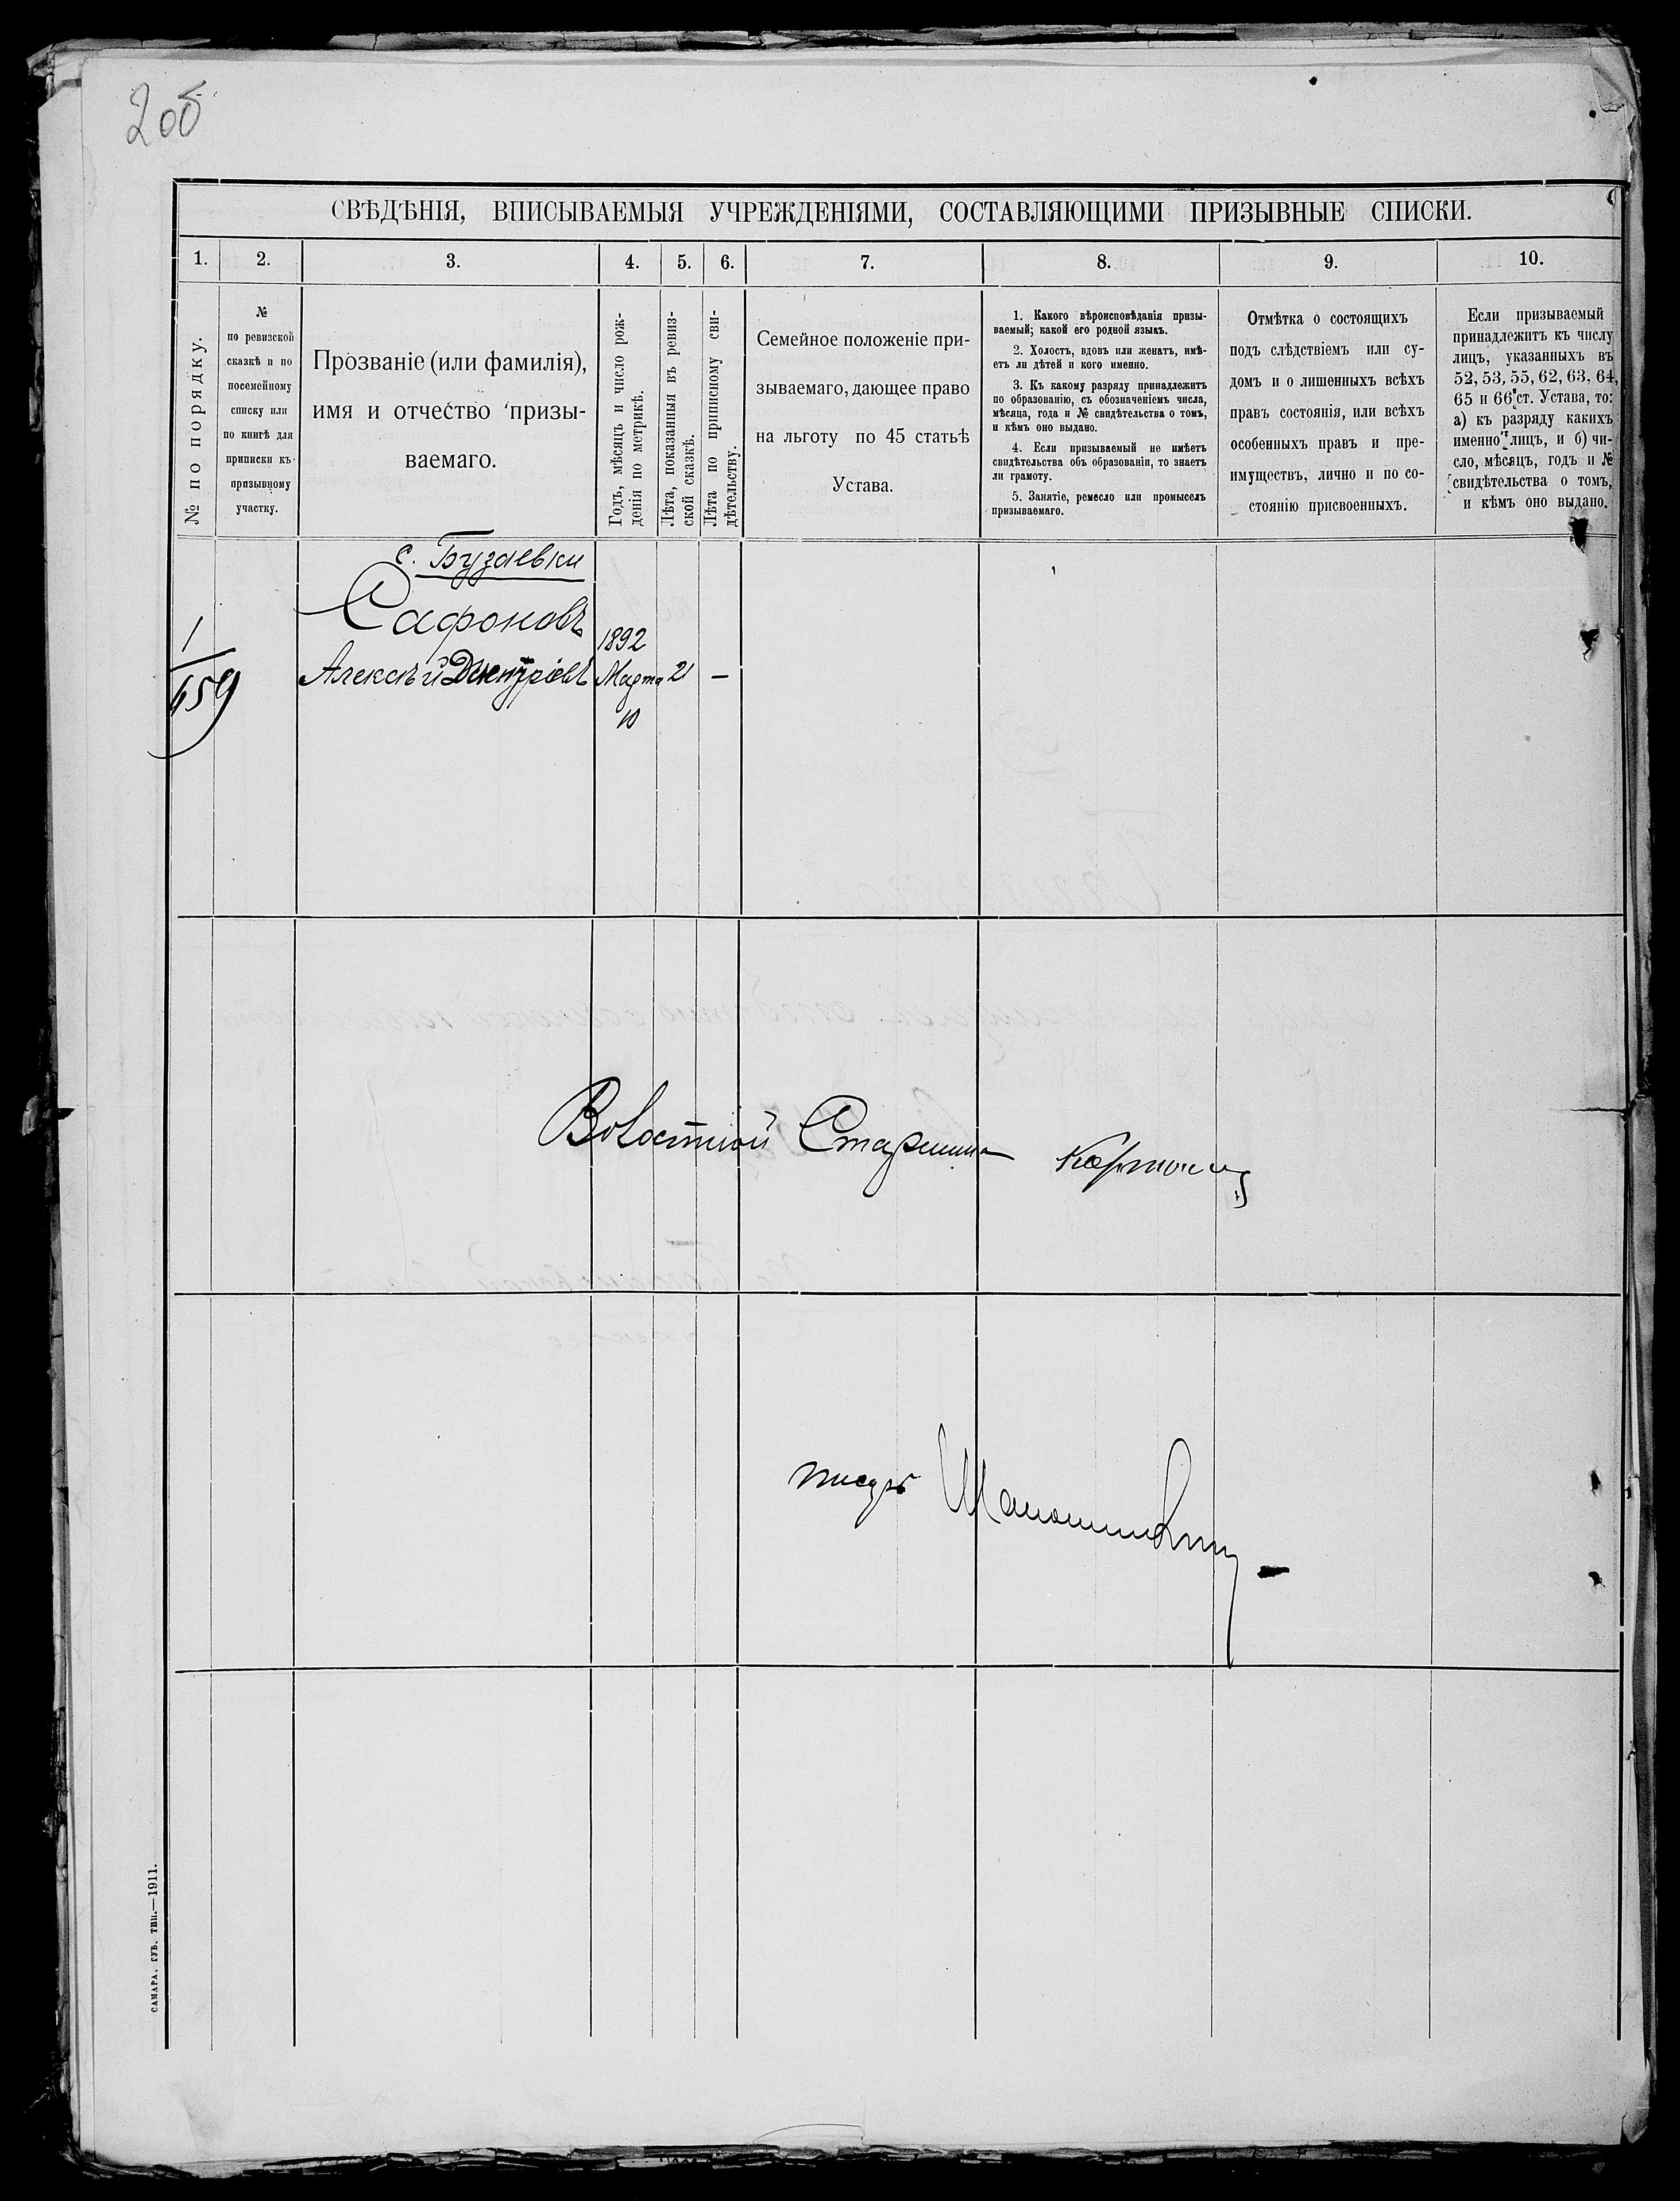 2об
СВѢДѢНІЯ, ВПИСЫВАЕМЫЯ УЧРЕЖДЕНІЯМИ, СОСТАВЛЯЮЩИМИ ПРИЗЫВНЫЕ СПИСКИ.
1. 2. 3. 4. 5. 6. 7. 8. 9. 10.
№ по порядку.
№
по ревизской
сказкѣ и по
посемейному
списку или
по книгѣ для
приписки къ
призывному
участку.
Прозваніе (или фамилія),
имя и отчество призы-
ваемаго.
Годъ, мѣсяцъ и число рож-
денія по метрикѣ.
Лѣта, показанныя въ ревиз-
ской сказкѣ.
Лѣта по приписному сви-
дѣтельству.
Семейное положеніе при-
зываемаго, дающее право
на льготу по 45 статьѣ
Устава.
1. Какого вѣроисповѣданія призы-
ваемый; какой его родной языкъ.
2. Холостъ, вдовъ или женатъ, имѣ-
етъ ли дѣтей и кого именно.
3. Къ какому разряду принадлежитъ
по образованію, съ обозначеніемъ числа,
мѣсяца, года и № свидѣтельства о томъ,
и кѣмъ оно выдано.
4. Если призываемый не имѣетъ
свидѣтельства объ образованіи, то знаетъ
ли грамоту.
5. Занятіе, ремесло или промыселъ
призываемаго.
Отмѣтка о состоящихъ
подъ слѣдствіемъ или су-
домъ и о лишенныхъ всѣхъ
правъ состоянія, или всѣхъ
особенныхъ правъ и пре-
имуществъ, лично и по со-
стоянію присвоенныхъ.
Если призываемый
принадлежитъ къ числу
лицъ, указанныхъ въ
52, 53, 55, 62, 63, 64,
65 и 66 ст. Устава, то:
а) къ разряду какихъ
именно лицъ, и б) чи-
сло, мѣсяцъ, годъ и №
свидѣтельства о томъ,
и кѣмъ оно выдано.
с. Бузаевки
Сафоновъ
1
659
Алексѣй Дмитріевъ
1892
Марта
10
21
—
Волостной Старшина
писарь
САМАРА. ГУБ. ТИП.—1911.